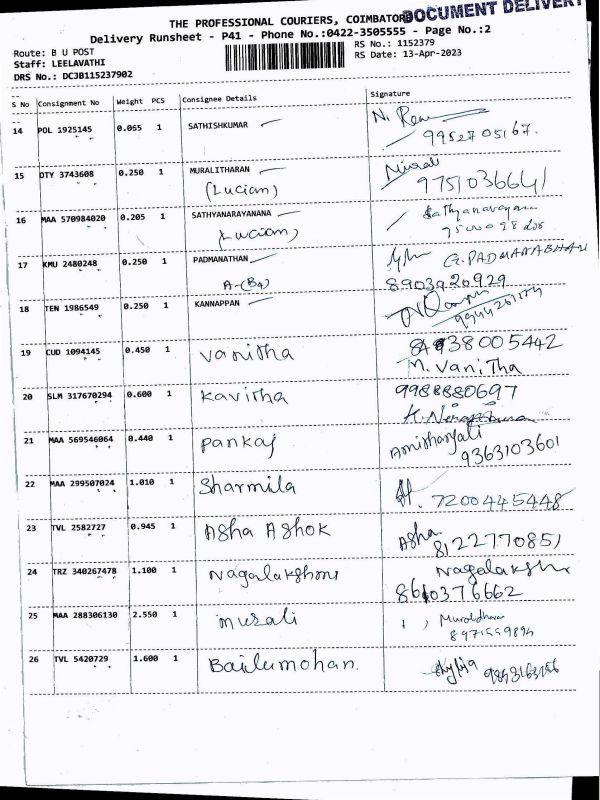 DOCUMENT DELIVERY
THE PROFESSIONAL COURIERS, COIMBATORE
Delivery Runsheet - P41 - Phone No.:0422-3505555 - Page No.:2
Route: B U POST
RS No.: 1152379
Staff: LEELAVATHI
RS Date: 13-Apr-2023
DRS No.: DC3B115237902
S No Consignment No Weight PCS Consignee Details Signature
14 POL 1925145 0.065 1 SATHISHKUMAR
9952705167.
15 DTY 3743608 0.250 1 MURALITHARAN Murali
(Lucian) 9751036641
16 MAA 570984020 0.205 1 SATHYANARAYANANA Sathyanarayana
(Lucian)
17 KMU 2480248 0.250 1 PADMANATHAN G.PADMANABHAN
A-(B4) 8903920929
18 TEN 1986549 0.250 1 KANNAPPAN
19 CUD 1094145 0.450 1 Vanitha 38005442
M. Vanitha
20 SLM 317670294 0.600 1 Kavitha 9988880697
21 MAA 569546064 0.440 1 Pankaj
9363103601
22 MAA 299507024 1.010 1 Sharmila 7200445448
23 TVL 2582727 0.945 1 Asha Ashok Asha
8122770851
24 TRZ 340267478 1.100 1 Nagalakshmi
8610376662
25 MAA 288306130 2.550 1 murali
26 TVL 5420729 1.600 1 Bailumohan.